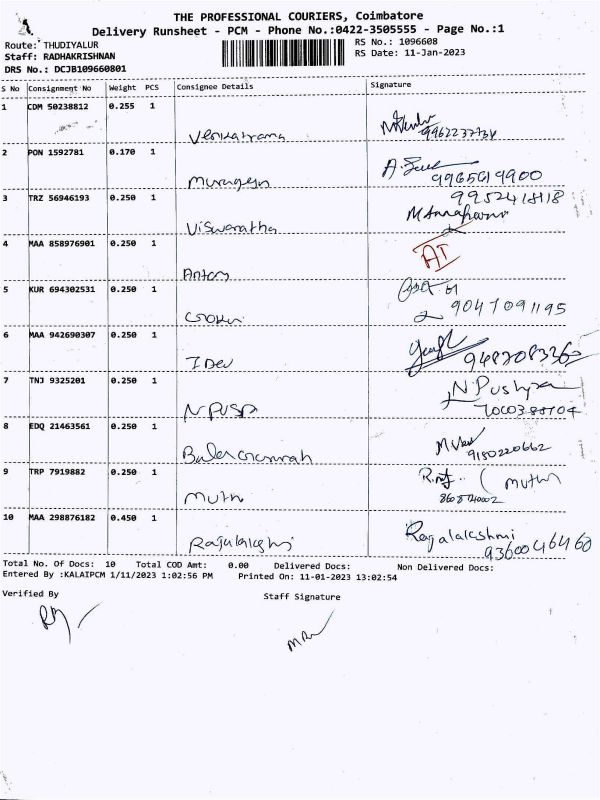 THE PROFESSIONAL COURIERS, Coimbatore
Delivery Runsheet - PCM - Phone No.:0422-3505555 - Page No.:1
Route: THUDIYALUR
RS No.: 1096608
Staff: RADHAKRISHNAN
RS Date: 11-Jan-2023
DRS No.: DCJB109660801
S No Consignment No Weight PCS Consignee Details Signature
1 CDM 50238812 0.255 1
2 PON 1592781 0.170 1
Murugesn 9965619900
3 TRZ 56946193 0.250 1
Viswanatha
4 MAA 858976901 0.250 1 AI
Antony
5 KUR 694302531 0.250 1
9047091195
6 MAA 942690307 0.250 1
I Dev
7 TNJ 9325201 0.250 1 N Pushpa
N PUSP
8 EDQ 21463561 0.250 1
9150220662
9 TRP 7919882 0.250 1 (Muthu
Muthu
10 MAA 298876182 0.450 1 Ragalakshmi
9360046460
Total No. Of Docs: 10 Total COD Amt: 0.00 Delivered Docs: Non Delivered Docs:
Entered By :KALAIPCM 1/11/2023 1:02:56 PM Printed On: 11-01-2023 13:02:54
Verified By Staff Signature